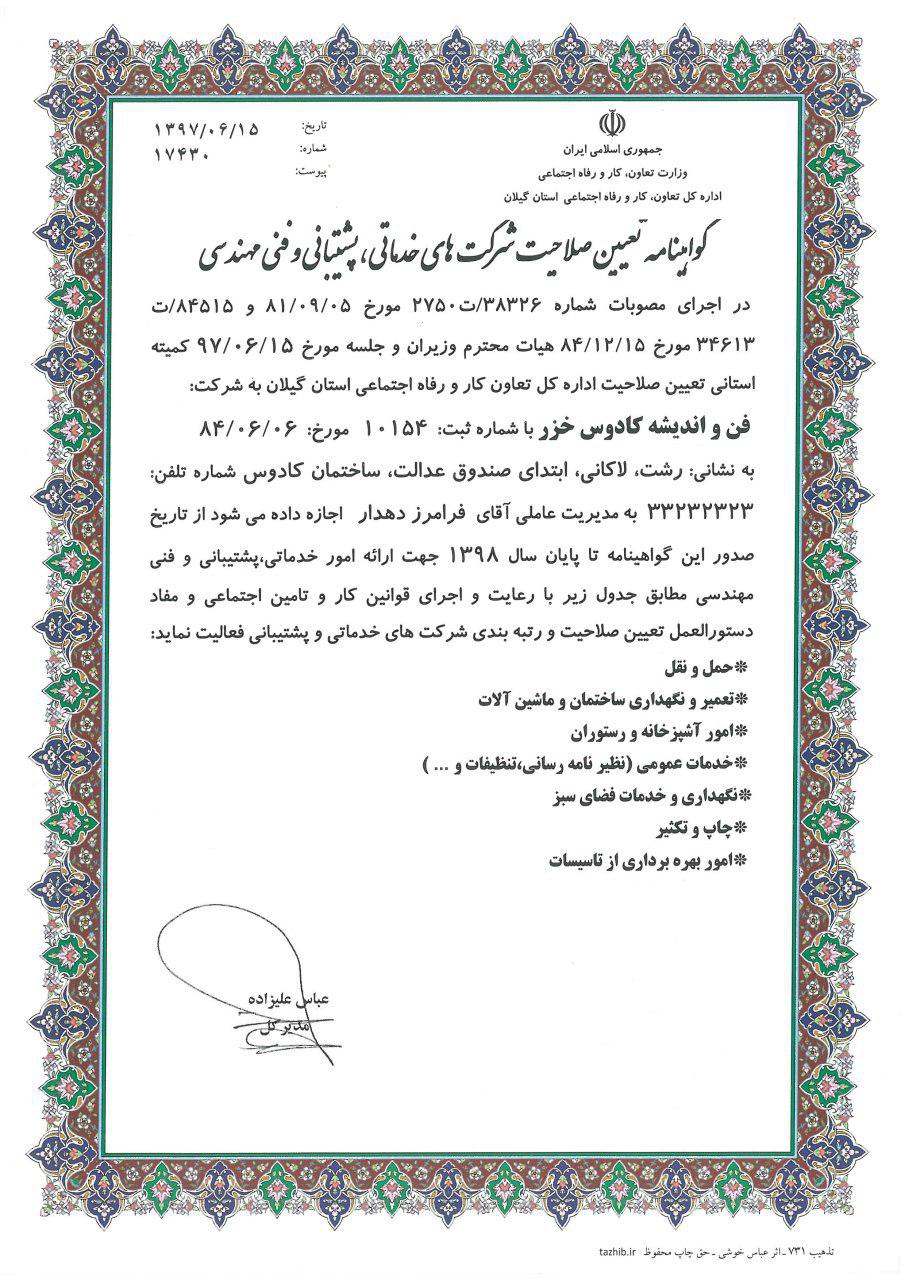 جمهوری اسلامی ایران
وزارت تعاون، کار و رفاه اجتماعی
اداره کل تعاون، کار و رفاه اجتماعی استان گیلان
تاریخ: ۱۳۹۷/۰۶/۱۵
شماره: ۱۷۴۳۰
پیوست:
گواهینامه تعیین صلاحیت شرکت های خدماتی، پشتیبانی و فنی مهندسی
در اجرای مصوبات شماره ۳۸۳۲۶/ت۲۷۵۰ مورخ ۸۱/۰۹/۰۵ و ۸۴۵۱۵/ت
۳۴۶۱۳ مورخ ۸۴/۱۲/۱۵ هیات محترم وزیران و جلسه مورخ ۹۷/۰۶/۱۵ کمیته
استانی تعیین صلاحیت اداره کل تعاون کار و رفاه اجتماعی استان گیلان به شرکت:
فن و اندیشه کادوس خزر با شماره ثبت: ۱۰۱۵۴ مورخ: ۸۴/۰۶/۰۶
به نشانی: رشت، لاکانی، ابتدای صندوق عدالت، ساختمان کادوس شماره تلفن:
۳۳۲۳۲۳۲۳ به مدیریت عاملی آقای فرامرز دهدار اجازه داده می شود از تاریخ
صدور این گواهینامه تا پایان سال ۱۳۹۸ جهت ارائه امور خدماتی،پشتیبانی و فنی
مهندسی مطابق جدول زیر با رعایت و اجرای قوانین کار و تامین اجتماعی و مفاد
دستورالعمل تعیین صلاحیت و رتبه بندی شرکت های خدماتی و پشتیبانی فعالیت نماید:
❊حمل و نقل
❊تعمیر و نگهداری ساختمان و ماشین آلات
❊امور آشپزخانه و رستوران
❊خدمات عمومی (نظیر نامه رسانی،تنظیفات و ... )
❊نگهداری و خدمات فضای سبز
❊چاپ و تکثیر
❊امور بهره برداری از تاسیسات
عباس علیزاده
مدیر کل
تذهیب ۷۳۱ ـ اثر عباس خوشی ـ حق چاپ محفوظ tazhib.ir